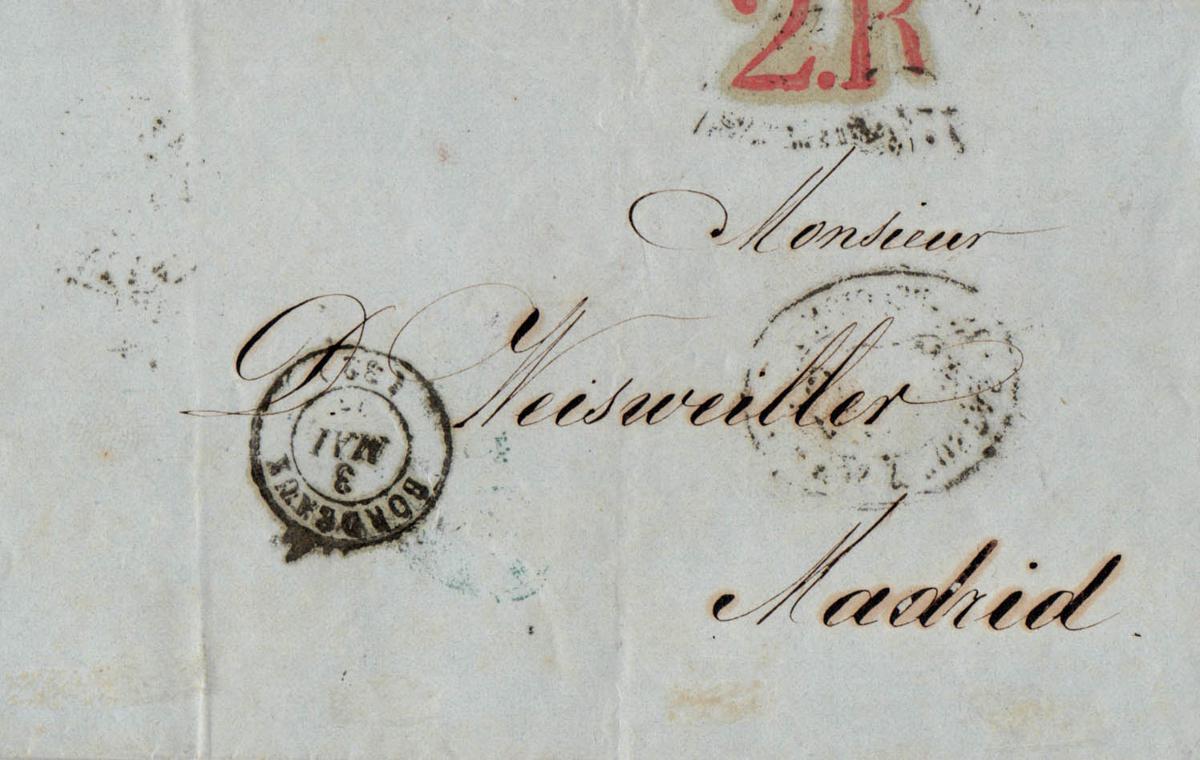 2.R
Monsieur
D Weisweiller
Madrid
BORDEAUX
3
MAI